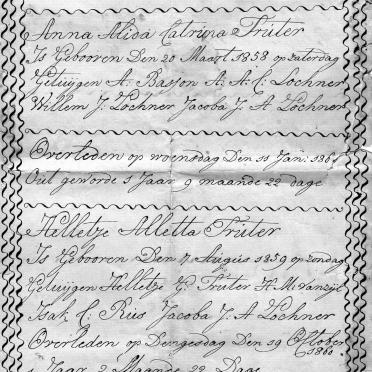 Anna Alida Catrina Trüter
Is Gebooren Den 20 Maart 1858 op zaterdag
Getuijgen A. Basson A. A. C. Lochner
Willem J. Lochner Jacoba J. A Lochner
Overleden op woensdag Den 11 Jan. 186
Out geworde 1 Jaar 9 maande 22 dage
Helletze Alletta Trüter
Is Gebooren Den 7 Augus 1859 op zondag
Getuijgen Helletze G. Trüter H. M. Vanzijl
Isak C. Rüs Jacoba J. A Lochner
Overleden op Dengesdag Den 29 October 1860
1 Jaar 2 Maande 22 Dage